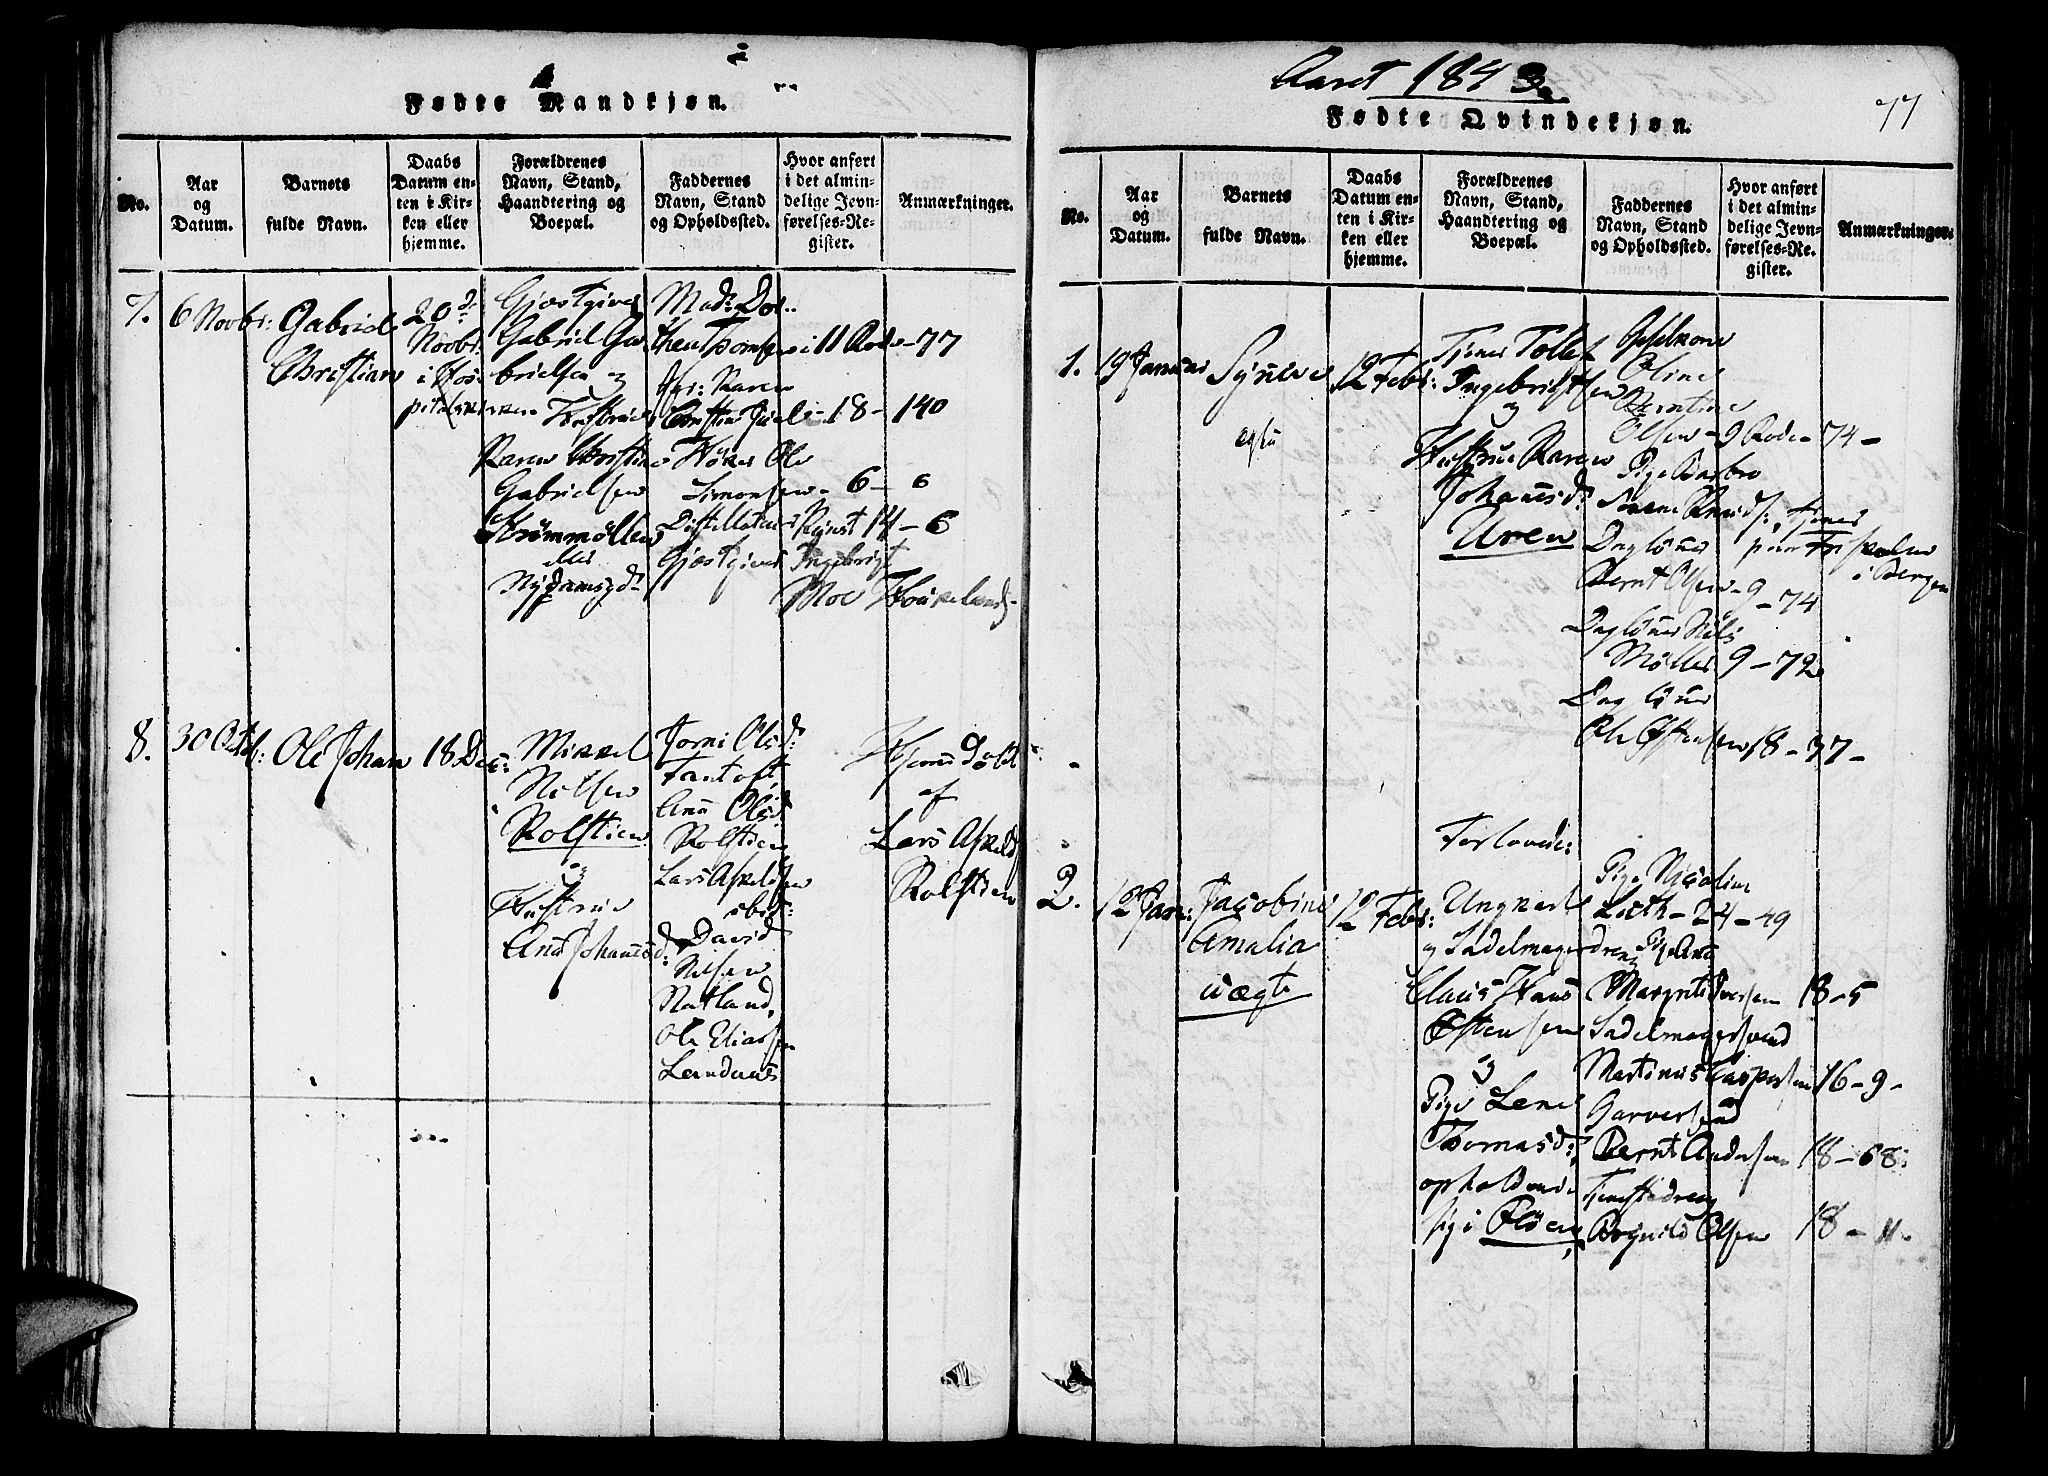 Fødte Mandkjøn.
No.
Aar
og
Datum.
Barnets
fulde Navn.
Daabs
Datum en-
ten i Kir-
ken eller
hjemme.
Forældrenes
Navn, Stand,
Haandtering og
Boepæl.
Faddernes
Navn, Stand
og Opholdssted.
Hvor anført
i det almin-
delige Jevn-
førelses-Re-
gister.
Anmærkninger.
7.
6 Novbr:
Gabriel
Christian
20d:
Novbr:
i Hos-
pitalskirken
Gjæstgiver
Gabriel Ga-
brielsen og
Hustrue
Karen
Gabrielsen
Strømmøllen
eller
Madm Dor-
11 Rode - 77
Karen
18 - 140
Høker Ole
Simonsen - 6 - 6
14 - 6
Gjæstgiver Ingebrigt
Moe Houkeland
8.
30 Octbr:
Ole Johan
18 Dec:
Mikkel
Nilsen
Rolstien
og
Hustrue
Anna Johannesd:
Jorni Olsd:
Fantoft,
Anna Olsd:
Rolstien
Lars Askeldsen
ibid:
David
Nilsen
Natland,
Ole Eliassen
Landaas
Hjemmedøbt
af
Lars Askelds
Rolstien
Aaret 1843
77
Fødte Qvindekjøn.
No.
Aar
og
Datum.
Barnets
fulde Navn.
Daabs
Datum en-
ten i Kir-
ken eller
hjemme.
Forældrenes
Navn, Stand,
Haandtering og
Boepæl.
Faddernes
Navn, Stand
og Opholdssted.
Hvor anført
i det almin-
delige Jevn-
førelses-Re-
gister.
Anmærkninger.
1.
19 Januar
Synive
ægte
12 Febr:
Tjener Tollef
Ingebrigtsen
og
Hustrue Karen
Johannesd:
Uren
Oline
Berntine
Olsen - 9 Rode - 74 -
Pige Barbro
tjener
i Bergen
Daglønner
Bernt Olsen - 9 - 74
Daglønner Nils
Møller 9 - 72
Daglønner
Ole Østensen 18 - 37 -
2.
12 Jan:
Jacobine
Amalia
uægte
12 Febr:
Forlovede:
Ungkarl
og Sadelmagerdreng
Claus Hans
Østensen
og
Pige Lene
Thomasd:,
opholdende
sig i Fløen,
Pige Nicoline
Leeth - 24 - 49
Pige Anna
Margrete Iversen 18 - 5
Sadelmagersvend
Martinus Caspersen 16 - 9 -
Garversvend
Bernt Andersen 18 - 68:
Tjenestedreng
Olsen 18 - 11.